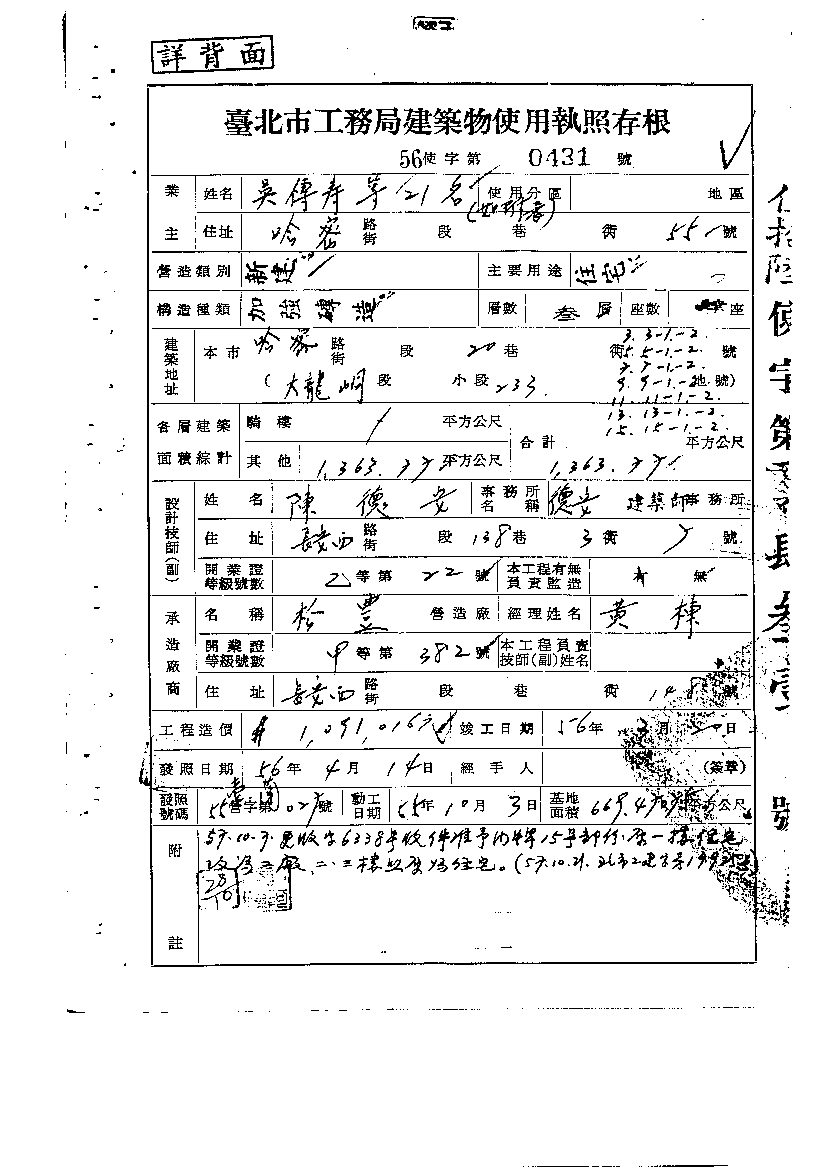 詳背面
臺北市工務局建築物使用執照存根
56使字第 0431 號
業主 姓名 吳傳寿等21名 使用分區 地區
(如附表)
住址 哈密 路街 段 巷 衖 55 號
營造類別 新建 主要用途 住宅
構造種類 加强磚造 層數 叁層 座數 座
建築地址 本市 哈密 路街 段 20巷 衖 號
3. 3-1.-2.
5. 5-1.-2.
7. 7-1-2.
9. 9-1.-2
11. 11-1.-2.
13. 13-1.-2.
15. 15-1.-2.
(大龍峒段 小段 233. 地號)
各層建築面積綜計 騎樓 / 平方公尺 合計 平方公尺
其他 1,363.77 平方公尺 1,363.77
設計技師(副) 姓名 陳德安 事務所名稱 德安 建築師事務所
住址 長安西 路街 段 138巷 3衖 7號
開業證等級號數 乙等第 22號 本工程有無負責監造 有 無
承造廠商 名稱 松豐 營造廠 經理姓名 黃棟
開業證等級號數 甲等第 382號 本工程負責技師(副)姓名
住址 長安西 路街 段 巷 衖 148號
工程造價 # 1,091,016元 竣工日期 56年 3月 日
發照日期 56年 4月 14日 經手人 (簽章)
發照號碼 55營字第 號 動工日期 55年 10月 3日 基地面積 669.4 平方公尺
附註 57.10.7. 收字6338号收件准予 15号部份 一樓住宅
改為 二.三樓 為住宅。(57.10.21.
28/10
使字第 號